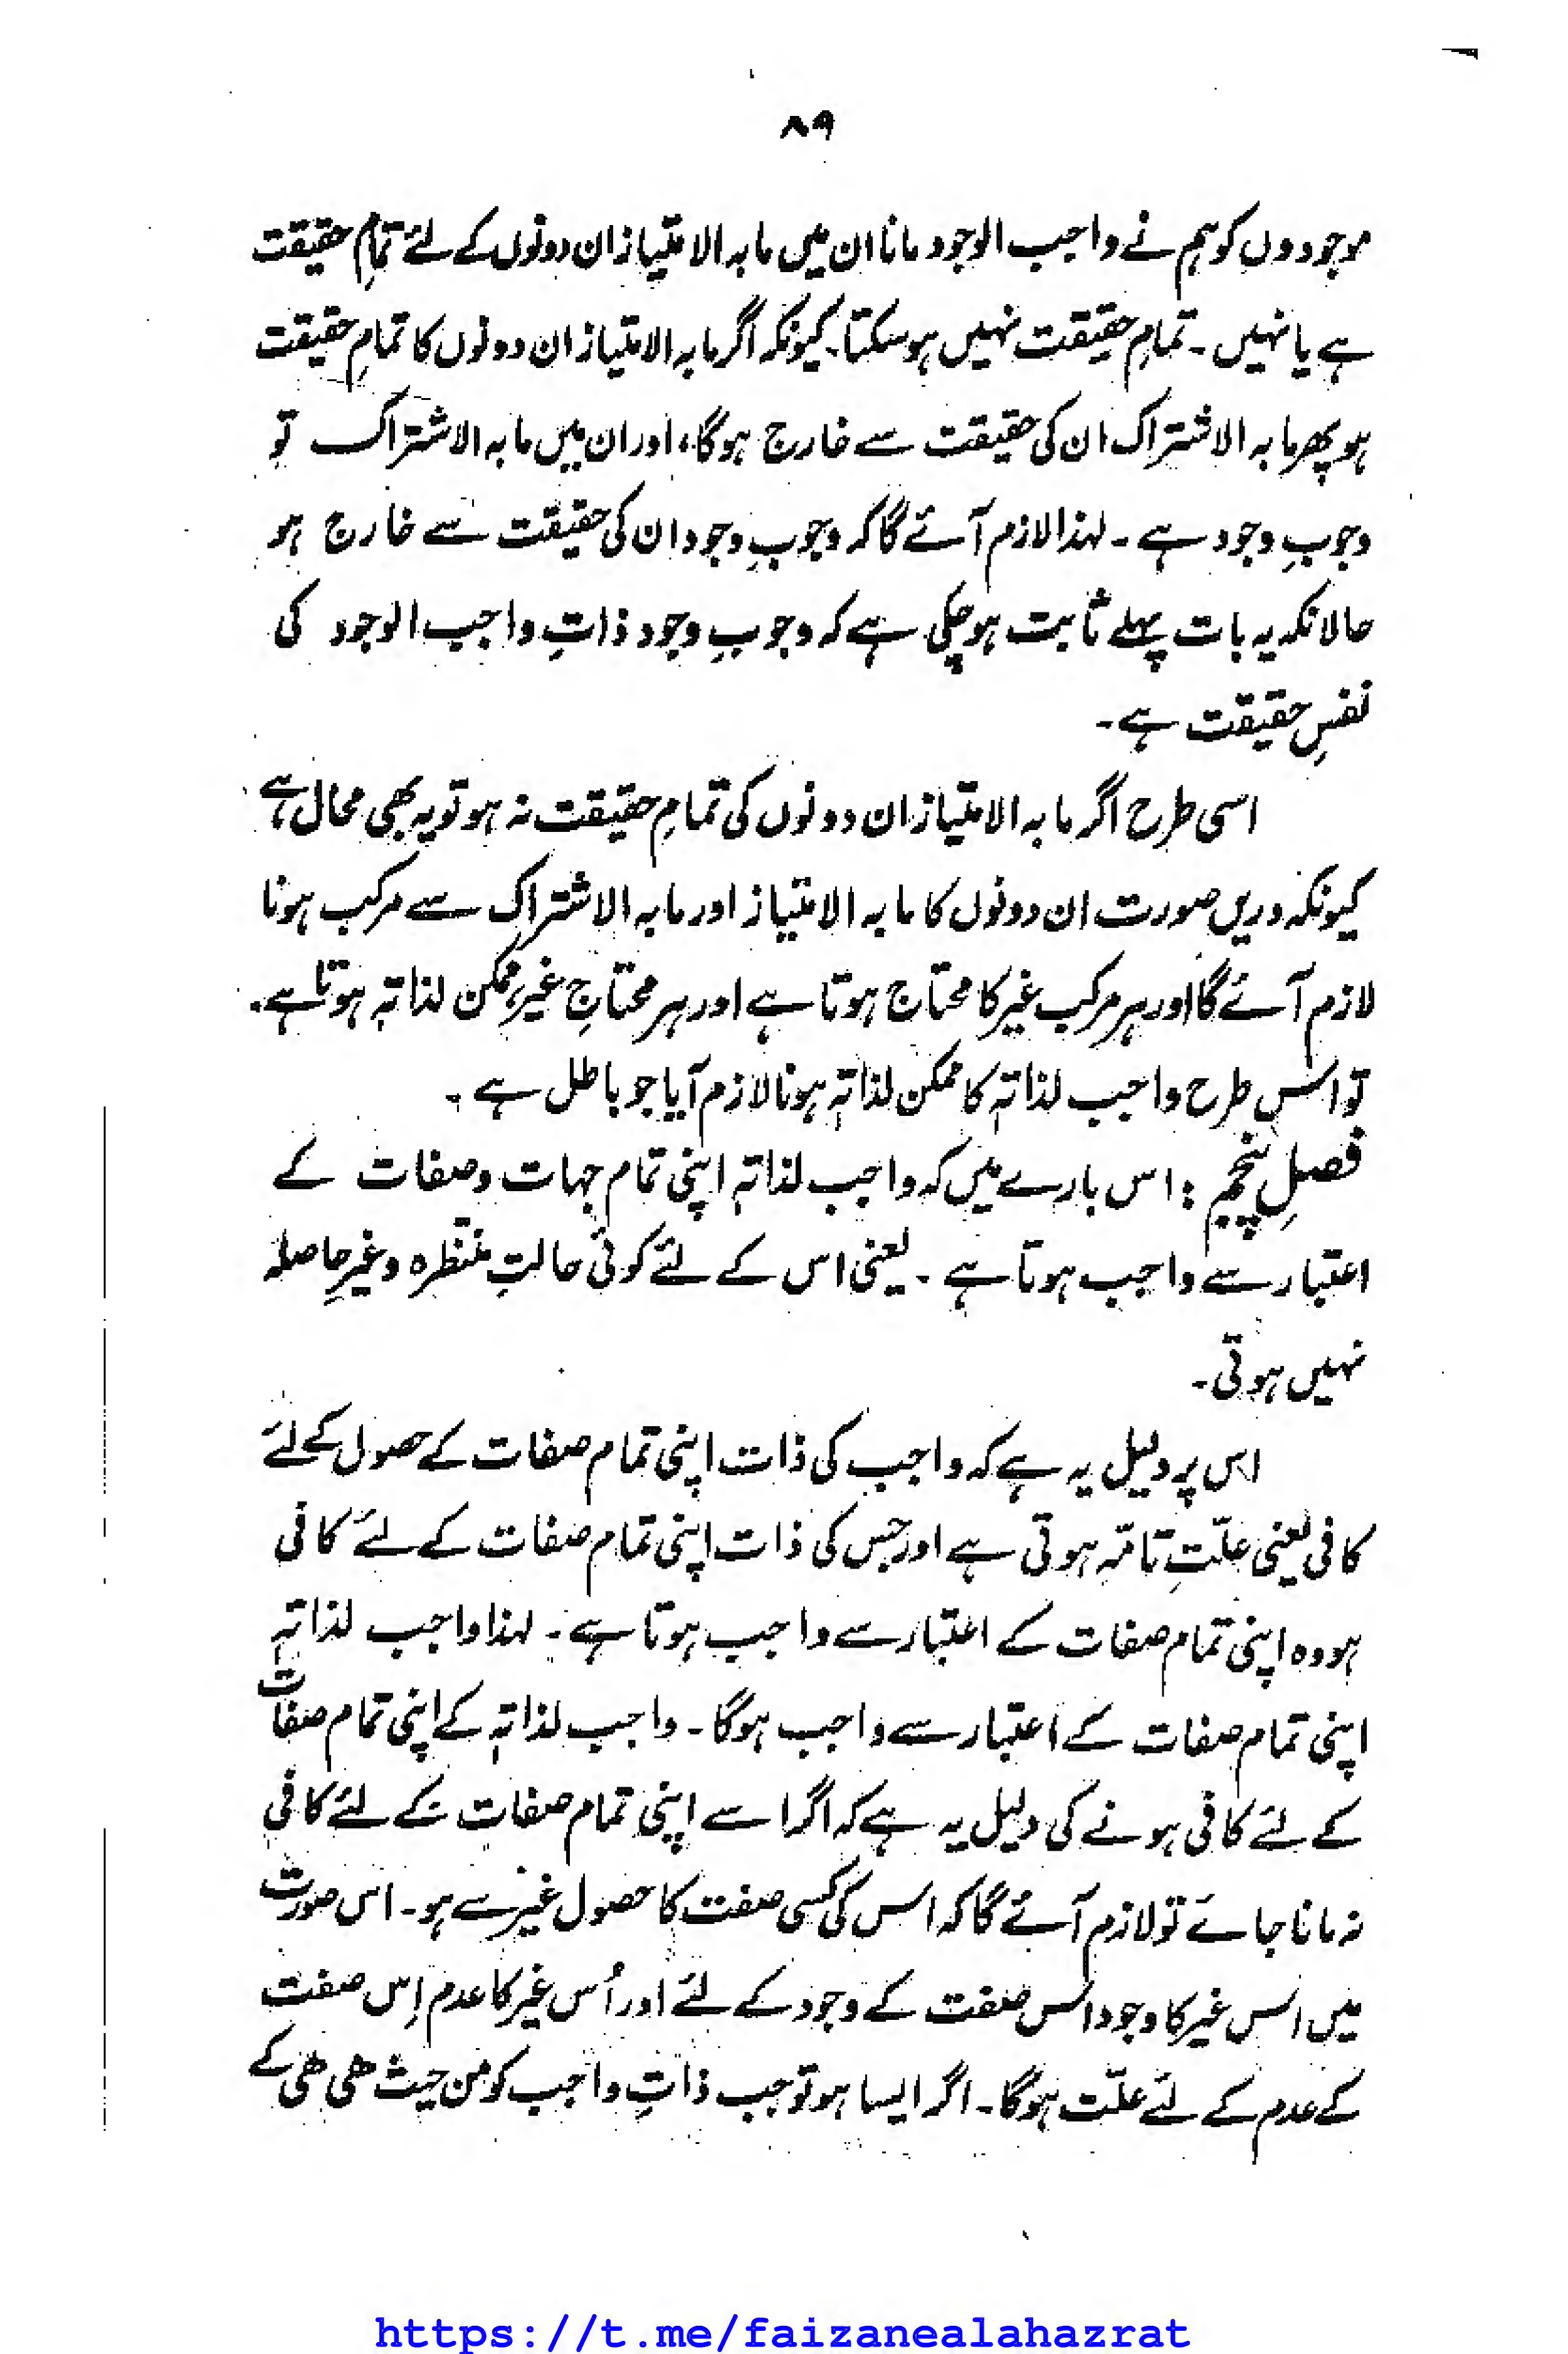 ۸۹
موجودوں کو ہم نے واجب الوجود مانا ان میں مابہ الامتیاز ان دونوں کے لئے تمامِ حقیقت
ہے یا نہیں ۔ تمامِ حقیقت نہیں ہو سکتا۔ کیونکہ اگر مابہ الامتیاز ان دونوں کا تمامِ حقیقت
ہو پھر مابہ الاشتراک ان کی حقیقت سے خارج ہوگا، اور ان میں مابہ الاشتراک تو
وجوبِ وجود ہے ۔ لہذا لازم آئے گا کہ وجوبِ وجود ان کی حقیقت سے خارج ہو
حالانکہ یہ بات پہلے ثابت ہو چکی ہے کہ وجوبِ وجود ذاتِ واجب الوجود کی
نفسِ حقیقت ہے ۔
اسی طرح اگر مابہ الامتیاز ان دونوں کی تمامِ حقیقت نہ ہو تو یہ بھی محال ہے
کیونکہ دریں صورت ان دونوں کا مابہ الامتیاز اور مابہ الاشتراک سے مرکب ہونا
لازم آئے گا اور ہر مرکب غیر کا محتاج ہوتا ہے اور ہر محتاجِ غیر، ممکن لذاتہٖ ہوتا ہے ۔
تو اس طرح واجب لذاتہٖ کا ممکن لذاتہٖ ہونا لازم آیا جو باطل ہے ۔
فصلِ پنجم : اس بارے میں کہ واجب لذاتہٖ اپنی تمام جہات و صفات کے
اعتبار سے واجب ہوتا ہے ۔ یعنی اس کے لئے کوئی حالتِ منتظرہ و غیرِ حاصلہ
نہیں ہوتی ۔
اس پر دلیل یہ ہے کہ واجب کی ذات اپنی تمام صفات کے حصول کے لئے
کافی یعنی علّتِ تامّہ ہوتی ہے اور جس کی ذات اپنی تمام صفات کے لئے کافی
ہو وہ اپنی تمام صفات کے اعتبار سے واجب ہوتا ہے ۔ لہذا واجب لذاتہٖ
اپنی تمام صفات کے اعتبار سے واجب ہوگا ۔ واجب لذاتہٖ کے اپنی تمام صفات
کے لئے کافی ہونے کی دلیل یہ ہے کہ اگر اسے اپنی تمام صفات کے لئے کافی
نہ مانا جائے تو لازم آئے گا کہ اس کی کسی صفت کا حصول غیر سے ہو ۔ اس صورت
میں اس غیر کا وجود اس صفت کے وجود کے لئے اور اُس غیر کا عدم اِس صفت
کے عدم کے لئے علّت ہوگا ۔ اگر ایسا ہو تو جب ذاتِ واجب کو من حیث ھی ھی کے
https://t.me/faizanealahazrat